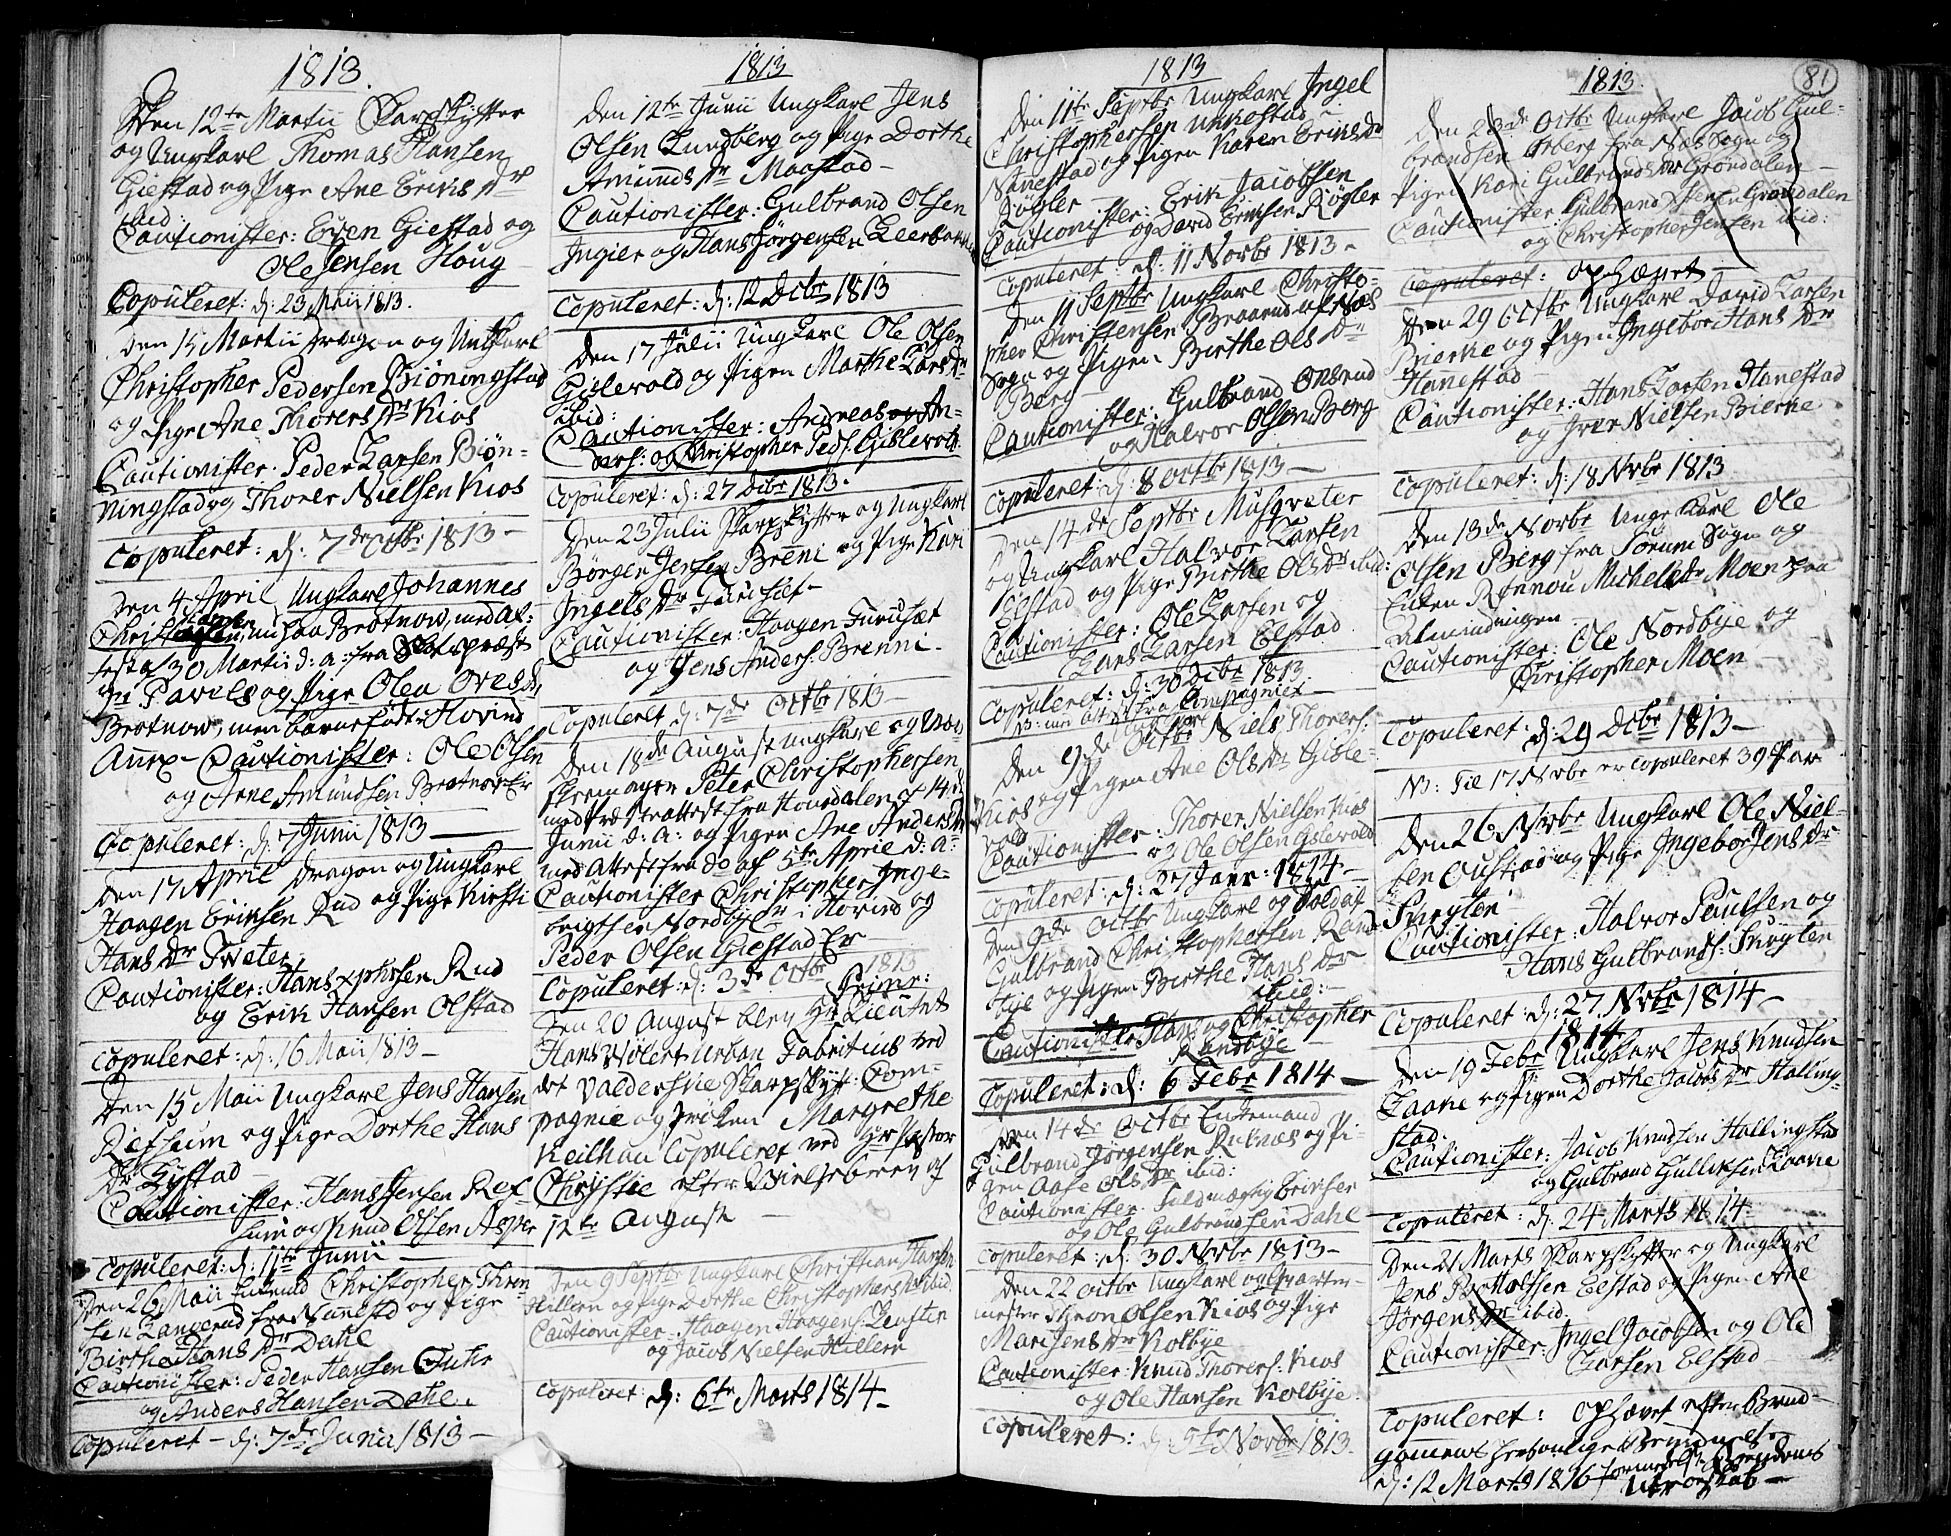 1813.
Den 12te Martii Skarpskytter
og Ungkarl Thomas Hansen
Giestad og Pige Ane Eriks Dr
ibid:
Cautionister: Even Giestad og
Ole Jensen Houg
Copuleret: d: 23 Maii 1813.
Den 15 Martii Dragon og Ungkarl
Christopher Pedersen Biöningstad
og Pige Ane Thorers Dr Kios
Cautionister: Peder Larsen Biön-
ningstad og Thorer Nielsen Kios
Copuleret: d: 7de Octbr 1813 -
Den 4 April Ungkarl Johannes
Christophersen, nu paa Brotnow, med At-
test af 30 Martii d: a: fra
Pavels og Pige Olea Oves Dr
Brotnow, men barnefödt i Hovind
Annx - Cautionister: Ole Olsen
og Arne Amundsen Brotnow Er
Copuleret: d: 7 Junii 1813 -
Den 17 April Dragon og Ungkarl
Haagen Eriksen Rud og Pige Kirsti
Hans Dr Tweter
Cautionister: Hans Xphersen Rud
og Erik Hansen Olstad
Copuleret: d: 16 Maii 1813 -
Den 15 Maii Ungkarl Jens Hansen
Refsum og Pige Dorthe Hans
Dr Gystad -
Cautionister: Hans Jensen Ref-
sum og Knud Olsen Asper
Copuleret: d: 11te Junii -
Den 26 Maii Enkemd Christopher Thron-
sen Langerud fra Nannestd og Pige
Birthe Hans Dr Dahl
Cautionister: Peder Hansen
og Anders Hansen Dahl.
Copuleret - d: 7de Junii 1813 -
1813
Den 12te Junii Ungkarl Jens
Olsen Lundberg og Pige Dorthe
Amunds Dr Maastad -
Cautionister: Gulbrand Olsen
Ingier og Hans Jörgensen Leerbakken
Copuleret: d: 12 Dcbr 1813
Den 17 Julii Ungkarl Ole Olsen
Gislevold og Pigen Marthe Lars Dr
ibid:
Cautionister: Andreas An-
ders: og Christopher Peds: Gislevold
Copuleret: d: 27 Dcbr 1813.
Den 23 Julii Skarpskytter og Ungkarl
Börger Jensen Breni og Pige Kari
Ingels Dr Furuset -
Cautionister: Haagen Furuset
og Jens Anders: Brenni -
Copuleret d: 7de Octbr 1813 -
Den 18de August Ungkarl og
Skomager Peter Christophersen
med Præsteattest fra Hourdalen af 14de
Junii d: a: og Pigen Ane Anders Dr
med Attest fra do af 5te Aprile d: a:
Cautionister Christopher Inge-
brigtsen Nordbye Er i Hovind og
Peder Olsen Giestad Er
Copuleret: d: 3de Octbr 1813
Den 20 August blev Hr Premr: Lieutnt
Hans Wilert Urban Fabritius ved
det Valderske Skarpskyt: Com-
pagnie og Fröken Margrethe
Keilhau Copuleret ved Hr Pastor
Christie efter Vielsebrev af
12te August -
Den 9 Septbr Ungkarl Christian Hansen
Hillern og Pige Dorthe Christophers Dr ibid.
Cautionister: Haagen Haagens: Lenstin
og Jacob Nielsen Hillern
Copuleret: d: 6te Marts 1814 -
1813
Den 11te Septbr Ungkarl Ingel
Christophersen Ukkestad i
Nanestad og Pigen Karen Eriks Dr
Rögler -
Cautionister: Erik Jacobsen
og David Eriksen Rögler
Copuleret: d: 11 Novbr 1813 -
Den 11 Septbr Ungkarl Christo-
pher Christensen Braarud af Næs
Sogn og Pigen Birthe Ols Dr
Berg -
Cautionister: Gulbrand Onsrud
og Halvor Olsen Berg
Copuleret: d: 8 Octbr 1813 -
Den 14de Septbr Musqveter
og Ungkarl Halvor Larsen
Elstad og Pige Birthe Ols Dr ibid:
Cautionister: Ole Larsen og
Lars Larsen Elstad
Copuleret: d: 30 Dcbr 1813
Attest fra Compagniet -
Den 9de Octbr Niels Thorers:
Kios og Pigen Ane Ols Dr Gisle-
vold
Cautionister: Thorer Nielsen Kios
og Ole Olsen Gislevold
Copuleret: d: 27 Janr: 1814 -
Den 9de Octbr Ungkarl og Soldat
Gulbrand Christophersen Rand-
bye og Pigen Birthe Hans Dr
ibid: -
Cautionister Hans og Christopher
Randbye
Copuleret: d: 6 Febr 1814 -
Den 14de Octbr Enkemand
Gulbrand Jörgensen Ruknæs og Pi-
gen Aase Ols Dr ibid:
Cautionister: Fuldmægtig Eriksen
og Ole Gulbrandsen Dahl
Copuleret: d: 30 Novbr 1813 -
Den 22 Octbr Ungkarl og Qvarter-
mester Thron Olsen Kios og Pige
Mari Jens Dr Kolbye
Cautionister: Knud Thorers: Kios
og Ole Hansen Kolbye.
Copuleret: d: 5te Novbr 1813.
81
1813.
Den 23de Octbr Ungkarl Jacob Gul-
brandsen Arberg fra Næs Sogn og
Pigen Kari Gulbrands Dr Gröndalen -
Cautionister Gulbrand Gröndalen
og Christopher Jensen ibid:
Copuleret: ophævet -
Den 29 Octbr Ungkarl David Larsen
Bierke og Pigen Ingebor Hans Dr
Hannestad -
Cautionister: Hans Larsen Hanestad
og Iver Nielsen Bierke
Copuleret: d: 18 Nvbr 1813
Den 13de Novbr Unge Karl Ole
Olsen Berg fra Sörum Sogn og
Enken Rönnou Michels Dr Moen paa
Almindingen -
Cautionister: Ole Nordbye og
Christopher Moen
Copuleret: d: 29 Dcbr 1813 -
NB: Til 17 Nvbr er copuleret 39 Par
Den 26 Nvbr Ungkarl Ole Niel-
sen og Pige Ingebor Jens Dr
Snygten
Cautionister: Halvor Paulsen og
Hans Gulbrands: Snygten
Copuleret: d: 27 Nvbr 1814 -
1814
Den 19 Febr Ungkarl Jens Knudsen
Laake og Pigen Dorthe Jacobs Dr Halling-
stad.
Cautionister: Jacob Knudsen Hallingstad
og Gulbrand Gulliksen Laake
Copuleret: d: 24 Marts 1814
Den 21 Marts Skarpskytter og Ungkarl
Jens Elstad og Pigen Ane
Jörgens Dr ibid.
Cautionister: Ingel Jacobsen og Ole
Larsen Elstad
Copuleret: ophævet efter Brud-
gomens
d: 12 Marts 1816 formedelst Brudens
Utroskab -